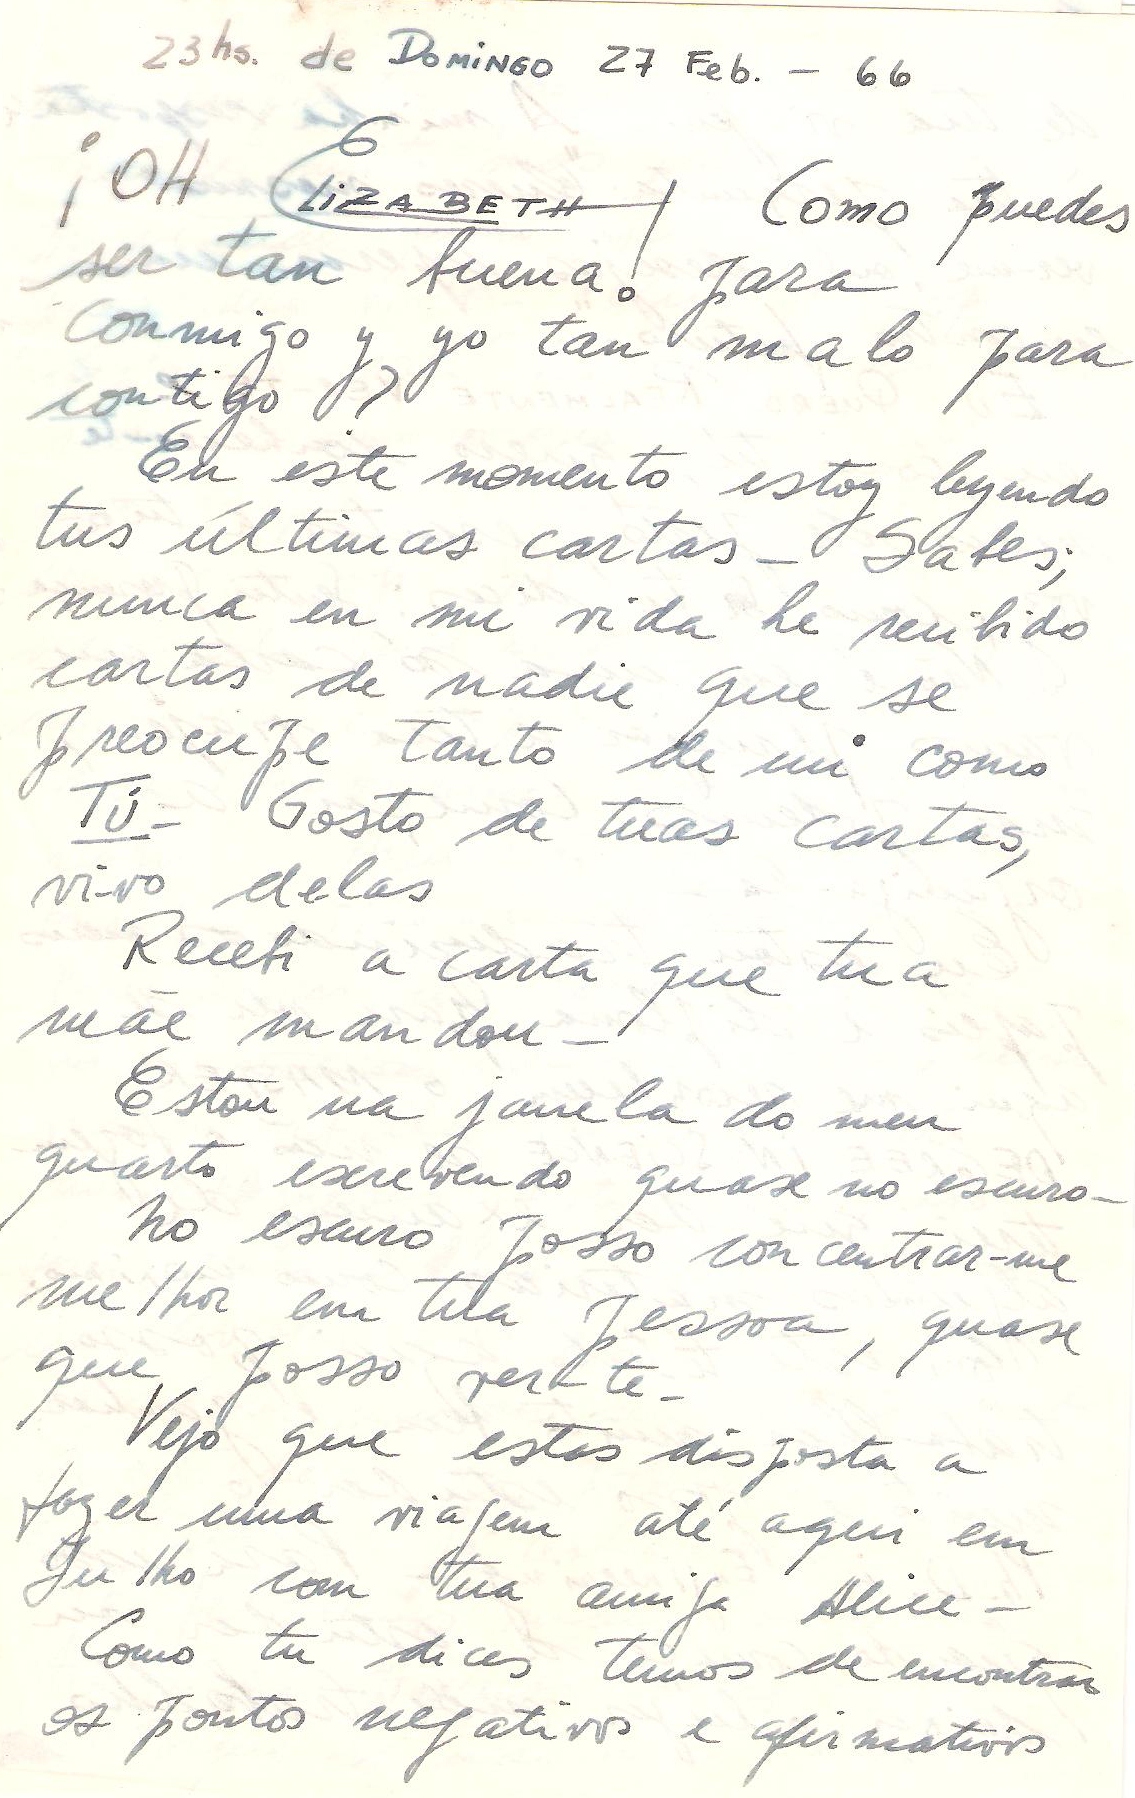 23 hs. de DOMINGO 27 Feb. - 66
¡OH ELIZABETH! Como puedes
ser tan buena para
conmigo y yo tan malo para
contigo?
En este momento estoy leyendo
tus últimas cartas - Sabes,
nunca en mi vida he recibido
cartas de nadie que se
preocupe tanto de mi como
TÚ - Gosto de tuas cartas,
vivo delas
Recebi a carta que tua
mãe mandou -
Estou na janela do meu
quarto escrevendo quase no escuro -
no escuro posso concentrar-me
melhor em tua pessoa, quase
que posso ver-te -
Vejo que estas disposta a
fazer uma viagem até aqui em
Julho com tua amiga Alice -
Como tu dices temos de encontrar
os pontos negativos e afirmativos